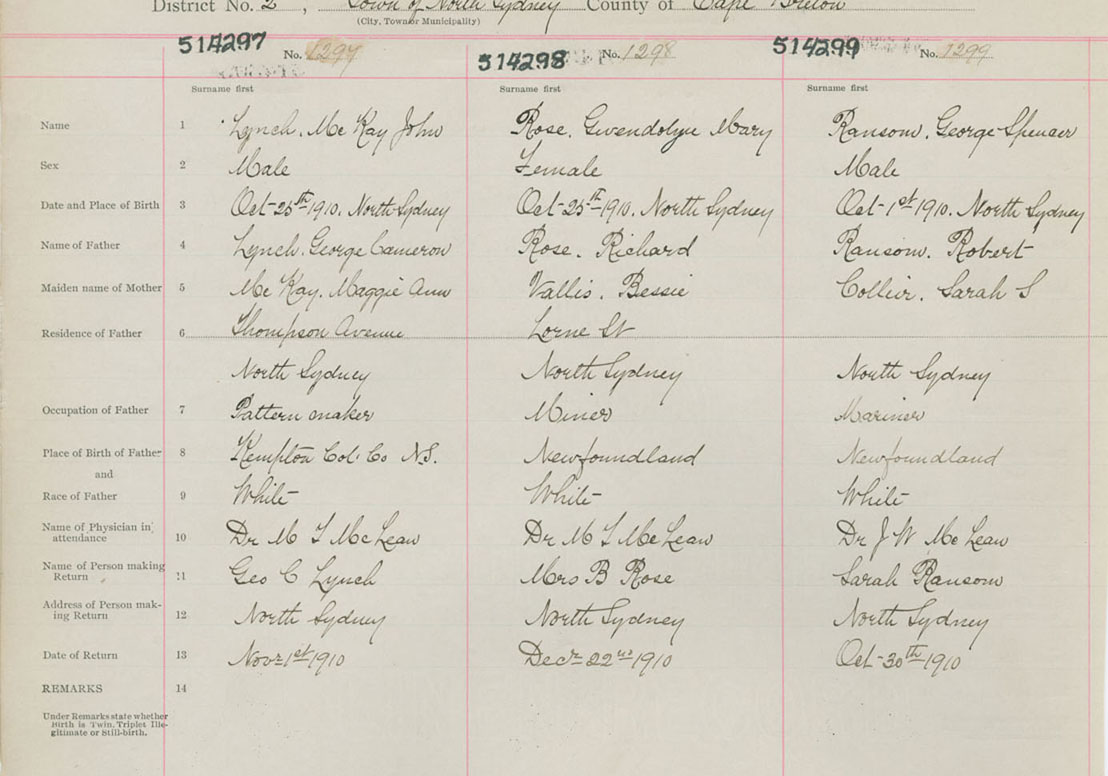 District No. 2, Town of North Sydney County of Cape Breton
(City, Town or Municipality)
514297 No. 1297 514298 No. 1298 514299 No. 1299
Surname first Surname first Surname first
Name 1 Lynch. Mc Kay John Rose. Gwendolyne Mary Ransom. George Spencer
Sex 2 Male Female Male
Date and Place of Birth 3 Oct-25th 1910. North Sydney Oct-25th 1910. North Sydney Oct-1st 1910. North Sydney
Name of Father 4 Lynch. George Cameron Rose. Richard Ransom. Robert
Maiden name of Mother 5 Mc Kay. Maggie Ann Vallis. Bessie Collier. Sarah S
Residence of Father 6 Thompson Avenue Lorne St
North Sydney North Sydney North Sydney
Occupation of Father 7 Pattern maker Miner Mariner
Place of Birth of Father 8 Kempton Col. Co N.S. Newfoundland Newfoundland
and
Race of Father 9 White White White
Name of Physician in
attendance 10 Dr M T McLean Dr M T McLean Dr J W McLean
Name of Person making
Return 11 Geo C Lynch Mrs B Rose Sarah Ransom
Address of Person mak-
ing Return 12 North Sydney North Sydney North Sydney
Date of Return 13 Novr 1st 1910 Decr 22nd 1910 Oct-30th 1910
REMARKS 14
Under Remarks state whether
Birth is Twin, Triplet Ille-
gitimate or Still-birth.